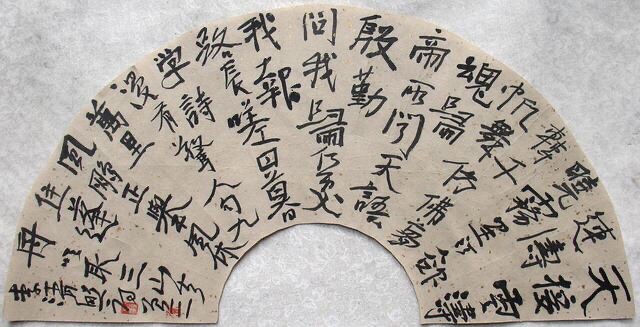 天接雲濤
連曉
霧星河欲
轉千
帆舞仿佛夢
魂歸
帝所聞天語
殷勤
問我歸何處
我報
路長嗟日暮
學詩
漫有驚人句九
萬里
風鵬正舉風休
住蓬
舟吹取三山去
李清照